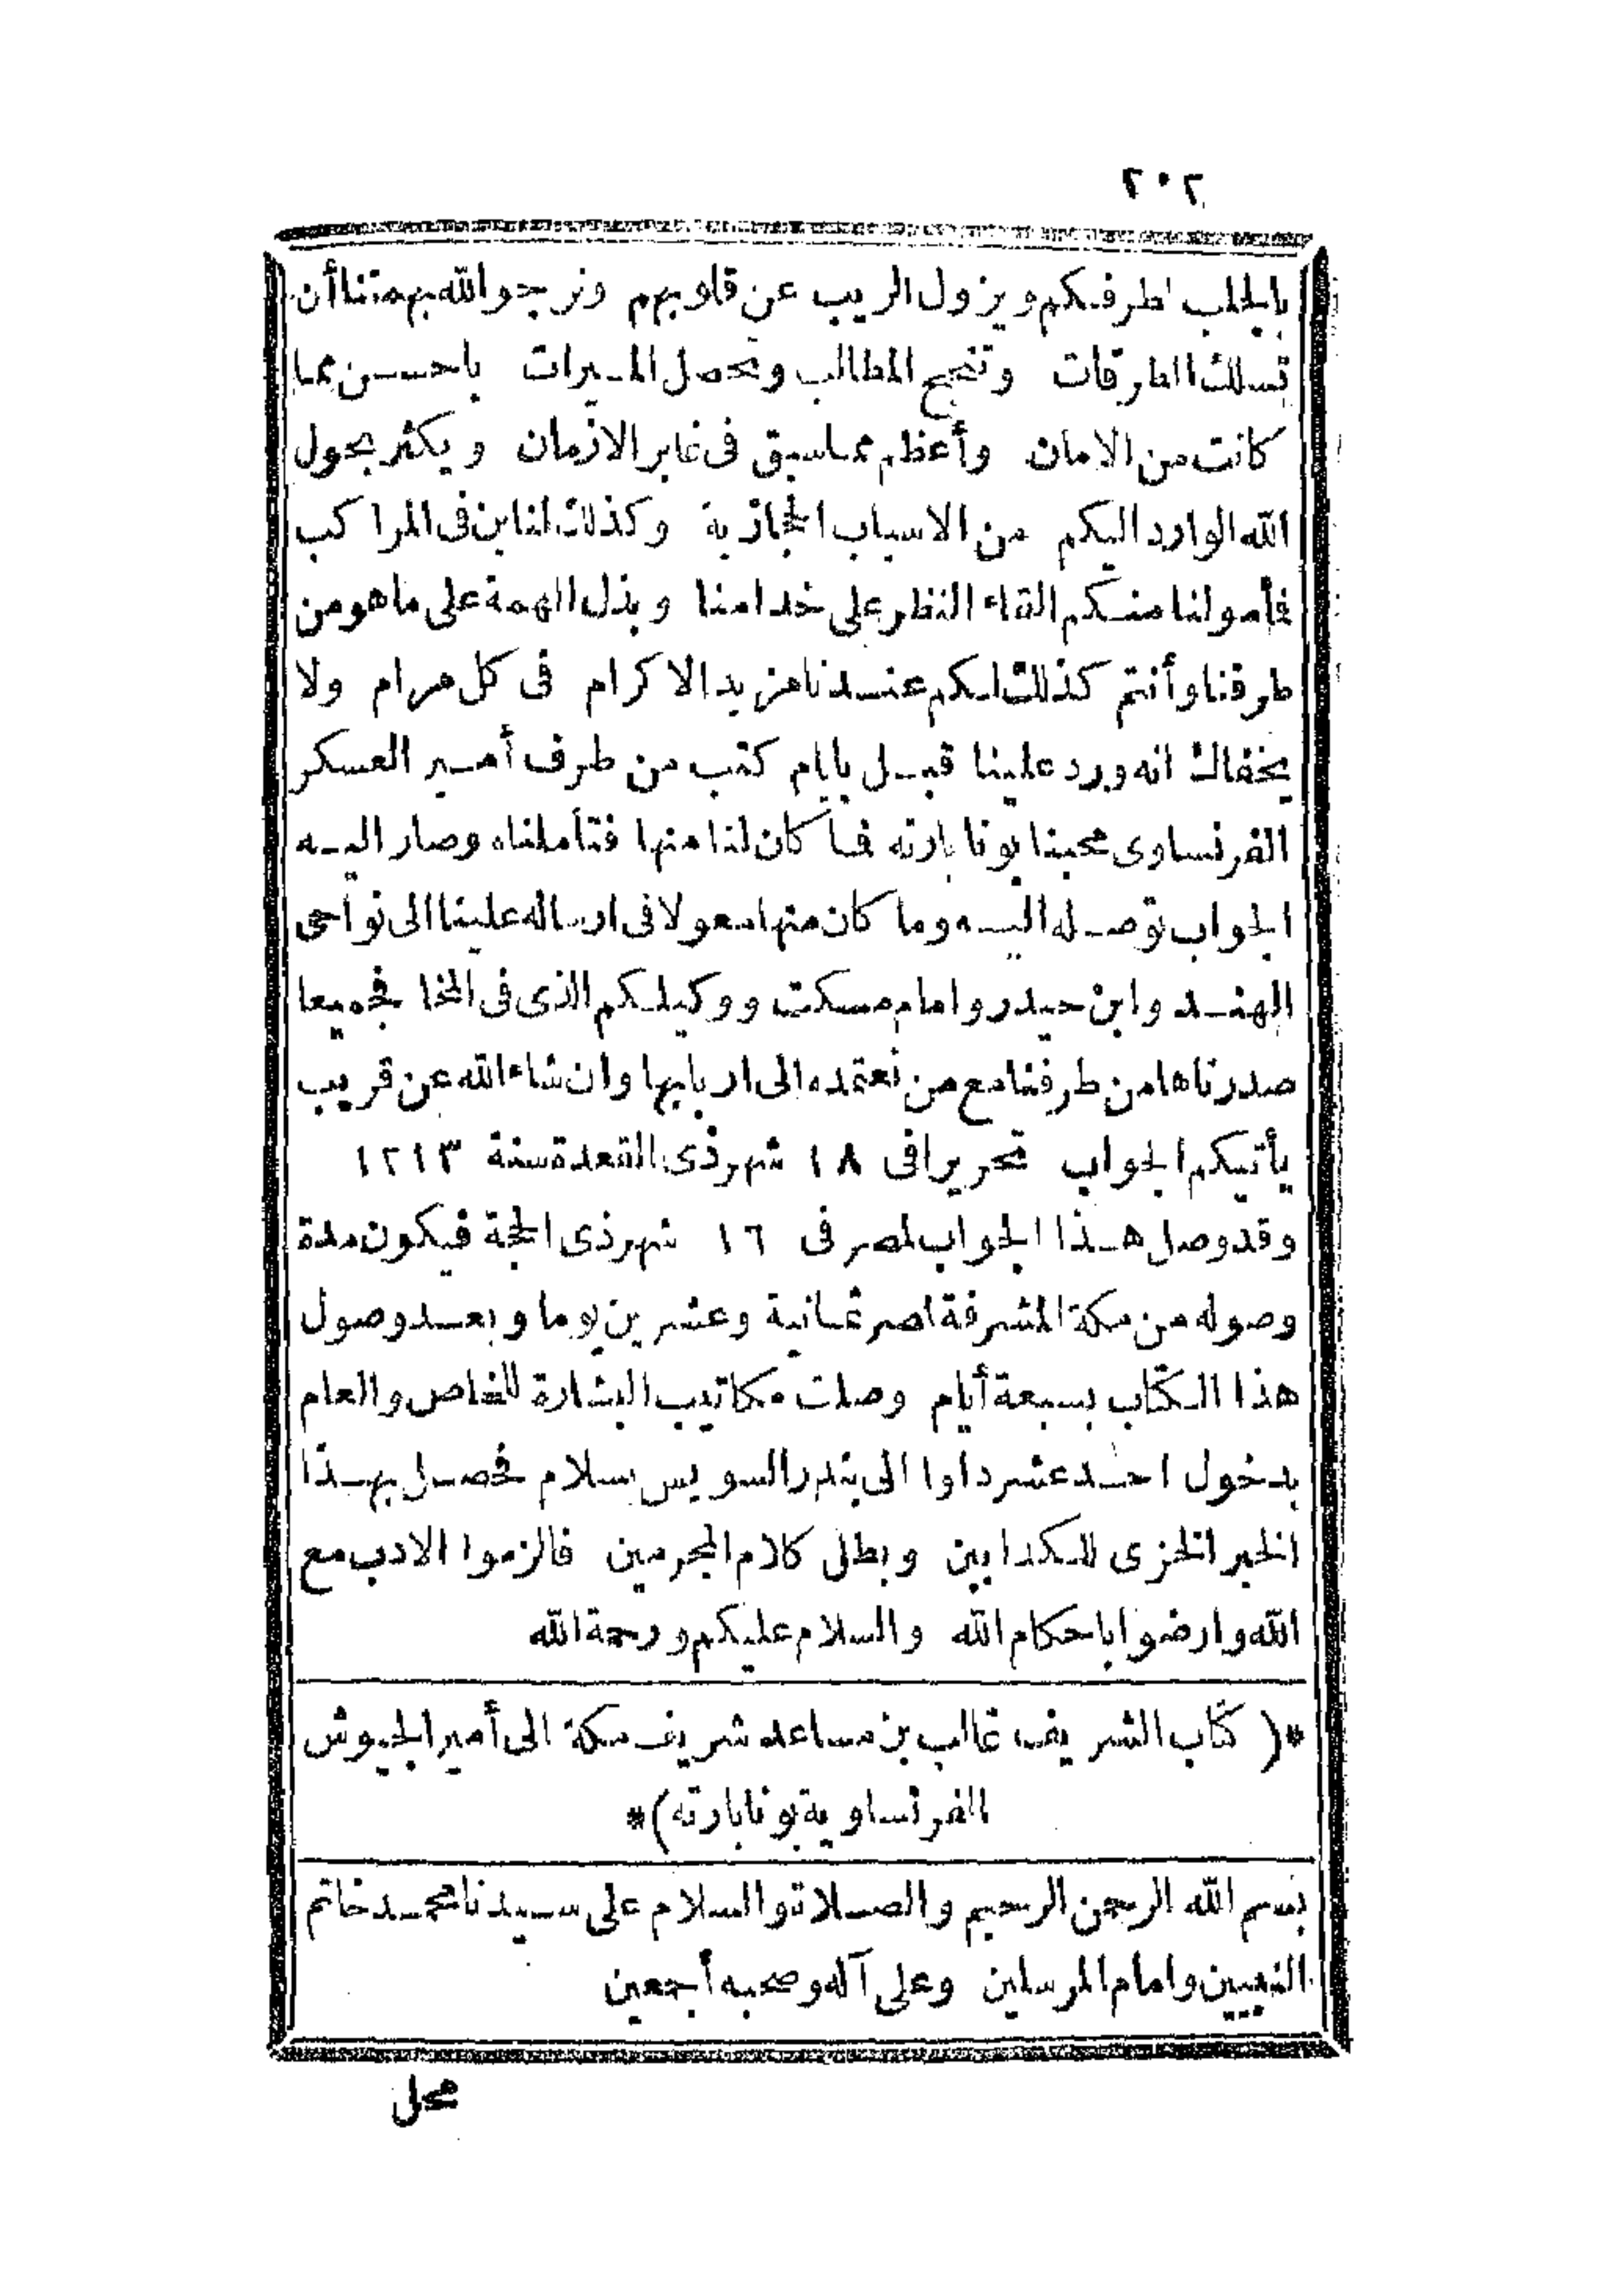 ٢٠٢
بالجلب لطرفكم ويزول الريب عن قلوبهم ونرجو الله بهمتنا أن
تسلك الطرقات وتنجح المطالب وتحصل الميرات باحسن مما
كانت من الامان وأعظم مما سبق فى غابر الازمان ويكثر بحول
الله الوارد اليكم من الاسباب الحجازية وكذلك لنا بن فى المراكب
فأمولنا منكم القاء النظر على خدامنا وبذل الهمة على ما هو من
طرفنا وأنتم كذلك لكم عندنا مزيد الاكرام فى كل مرام ولا
يخفاك انه ورد علينا قبل بايام كتب من طرف أمير العسكر
الفرنساوى محبنا بونابارته فما كان لنا منها فتأملناه وصار اليه
الجواب توصله اليه وما كان منها معولا فى ارساله علينا الى نواحى
الهند وابن حيدر وامام مسكت ووكيلكم الذى فى المخا فجميعا
صدرناها من طرفنا مع من نعتمده الى اربابها وان شاء الله عن قريب
يأتيكم الجواب تحريرا فى ١٨ شهر ذى القعدة سنة ١٢١٣
وقد وصل هذا الجواب لمصر فى ١٦ شهر ذى الحجة فيكون مدة
وصوله من مكة المشرفة لمصر ثمانية وعشرين يوما وبعد وصول
هذا الكتاب بسبعة أيام وصلت مكاتيب البشارة للخاص والعام
بدخول احد عشر داوا الى بندر السويس بسلام فحصل بهذا
الخبر الخزى للكدابين وبطل كلام المجرمين فالزموا الادب مع
الله وارضوا باحكام الله والسلام عليكم ورحمة الله
*( كتاب الشريف غالب بن مساعد شريف مكة الى أمير الجيوش
الفرنساوية بونابارته)*
بسم الله الرحمن الرحيم والصلاة والسلام على سيدنا محمد خاتم
النبيين وامام المرسلين وعلى آله وصحبه أجمعين
محل